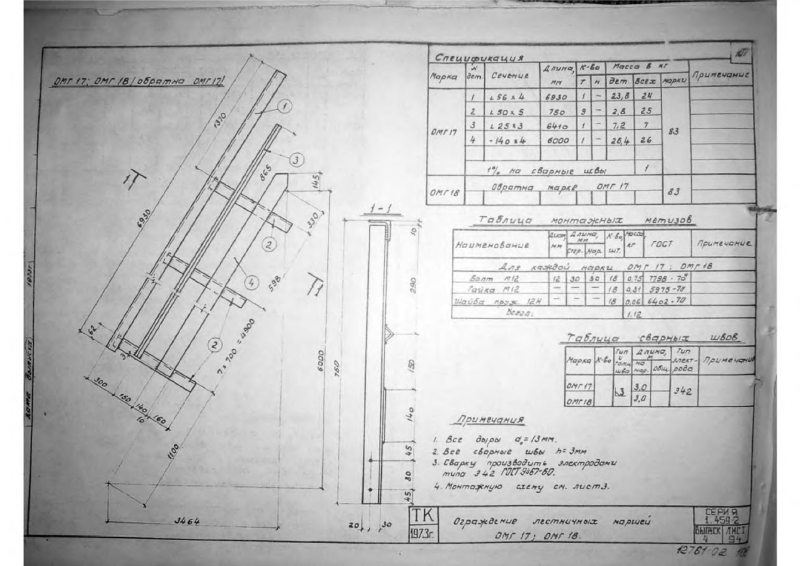 ОМГ 17; ОМГ 18 /обратна ОМГ 17/
1310
6930
62
300
150
140
160
10
1100
3464
7 × 700 = 4900
598
330
145
865
6000
1
3
2
4
2
1
1
1-1
10
290
760
150
140
45
80
45
20
30
Спецификация
Марка № дет Сечение Длина, мм К-во Т Н Масса в кг дет Всех марки Примечание
ОМГ17 83
1 ∟56×4 6930 1 – 23,8 24
2 ∟50×5 750 9 – 2,8 25
3 ∟25×3 6410 1 – 7,2 7
4 -140×4 6000 1 – 26,4 26
1% на сварные швы 1
ОМГ18 Обратна марке ОМГ 17 83
Таблица монтажных метизов
Наименование Диам мм Длина, мм стер. нар. К-во, шт. Масса, кг ГОСТ Примечание
Для каждой марки ОМГ 17; ОМГ18
Болт М12 12 30 30 18 0,75 7798-70
Гайка М12 – – – 18 0,31 5915-70
Шайба пруж. 12Н – – – 18 0,06 6402-70
Всего: 1,12
Таблица сварных швов
Марка К-во Тип и толщ. шва Длина, м на мар. общ. Тип элект-рода Примечание
ОМГ17 3,0
3 Э42
ОМГ18 3,0
Примечания
1. Все дыры d₀ = 13 мм.
2. Все сварные швы h = 3мм
3. Сварку производить электродами
типа Э42 ГОСТ 9467-60.
4. Монтажную схему см. лист 3.
ТК
1973г.
Ограждение лестничных маршей
ОМГ 17; ОМГ 18.
СЕРИЯ
1.459-2
ВЫПУСК ЛИСТ
4 94
12761-02